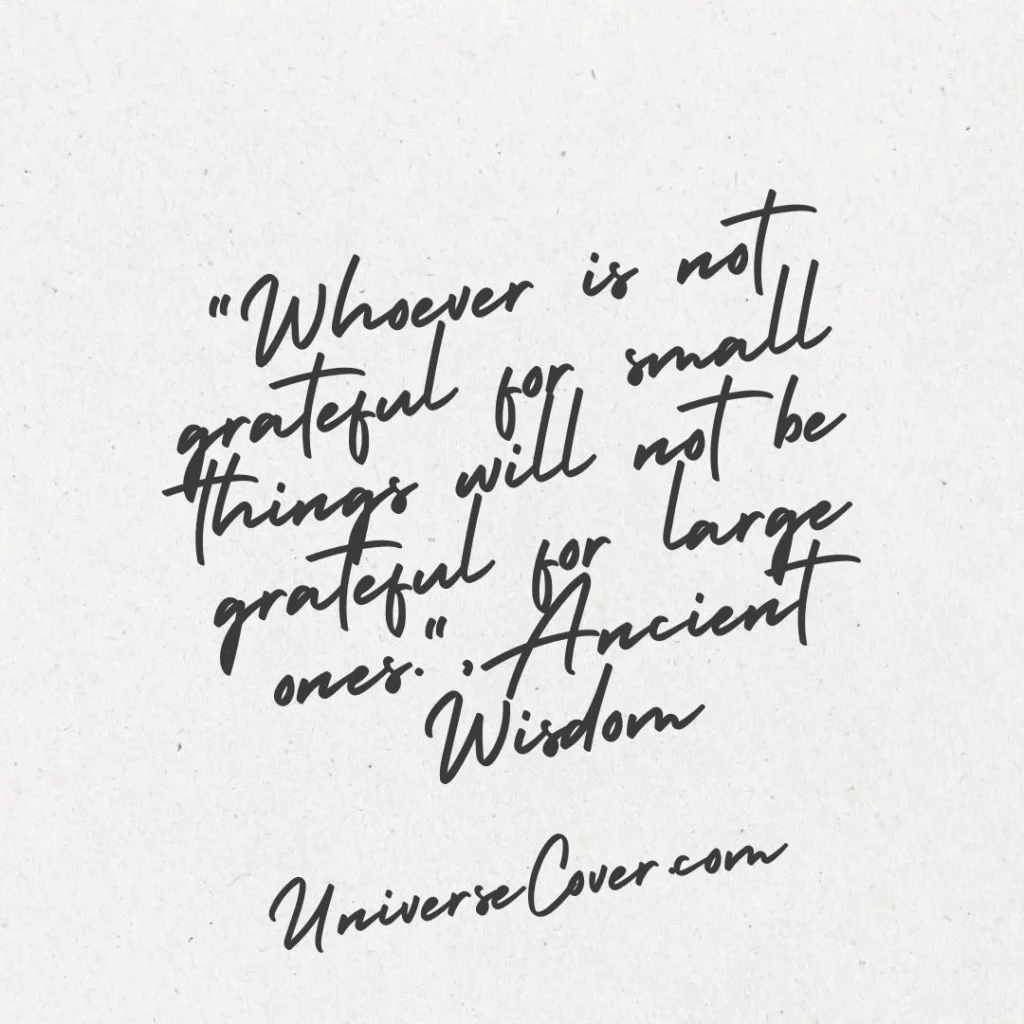 "Whoever is not
grateful for small
things will not be
grateful for large
ones.", Ancient
Wisdom
UniverseCover.com